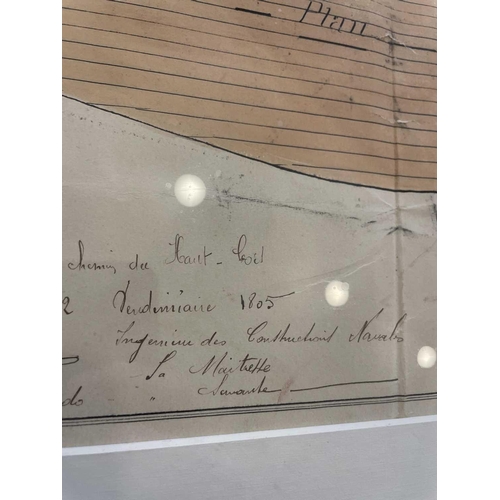 Plan
chemin du Haut-
2 Vendémiaire 1805
Ingenieur des Constructions Navales
Sa Maitresse
do " Servante